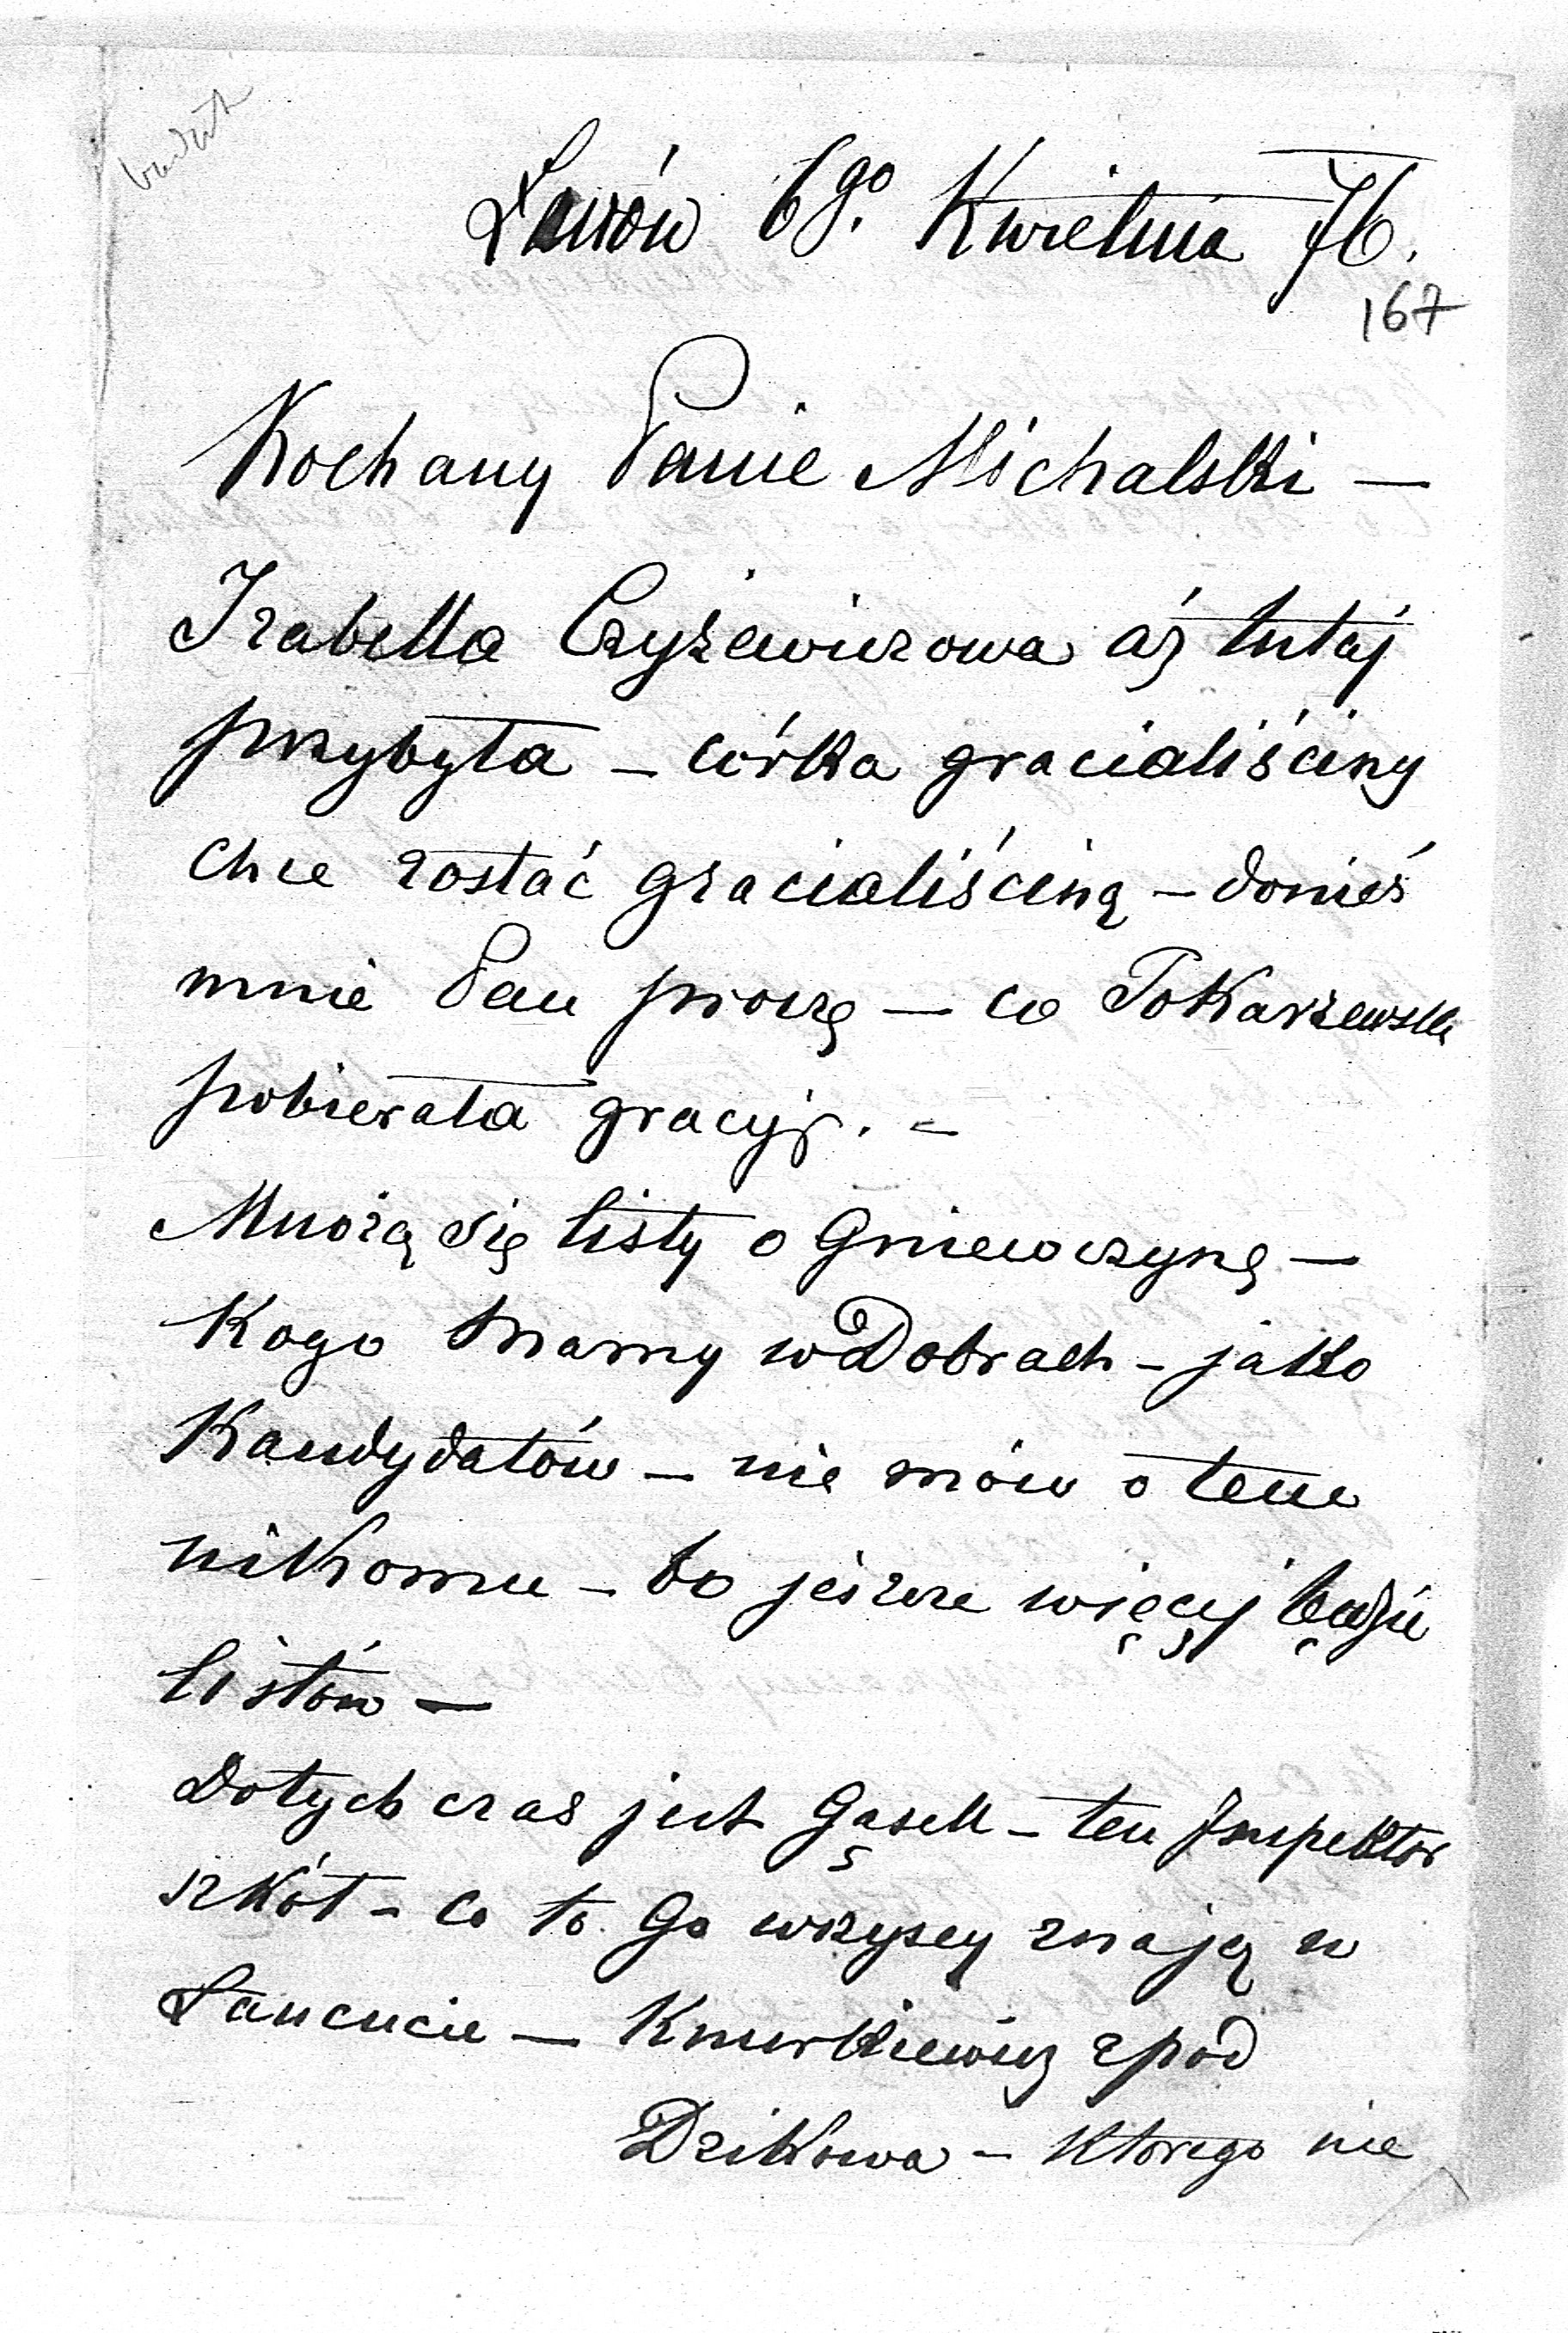 Lwów 6go. Kwietnia 76.
167
Kochany Panie Michalski —
Izabella Czyżewiczowa aż tutaj
przybyła — córka gracialiściny
chce zostać gracialiściną — donieś
mnie Pan proszę — co Tokarzewska
pobierała gracyję. —
Mnożą się listy o Gniewczynę —
Kogo mamy w Dobrach — jako
Kandydatów — nie mów o tem
nikomu — bo jeszcze więcej będzie
listów —
Dotychczas jest Gąsell — ten Inspektor
szkół — co to Go wszyscy znają w
Łańcucie — Knurkiewicz zpod
Dzikowa — którego nie